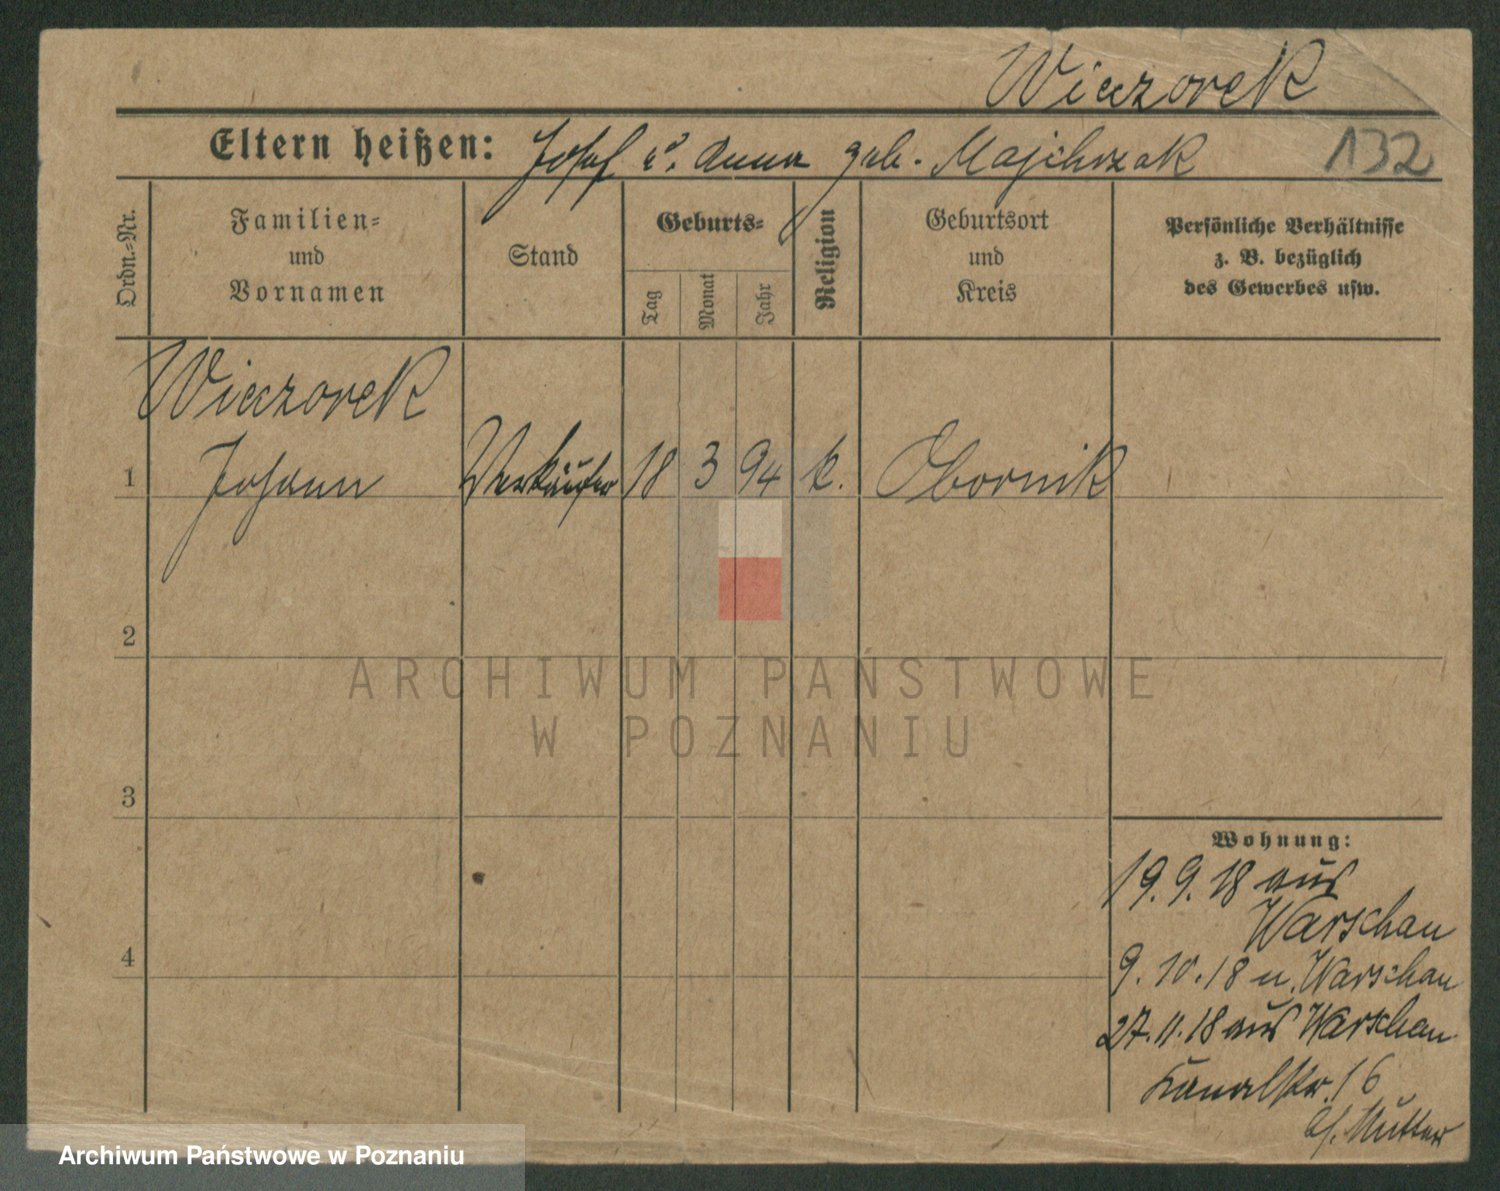 Wieczorek
Eltern heißen: Josef u. Anna geb. Majchrzak
132
Ordn.-Nr.
Familien-
und
Vornamen
Stand
Geburts-
Tag
Monat
Jahr
Religion
Geburtsort
und
Kreis
Persönliche Verhältnisse
z. B. bezüglich
des Gewerbes usw.
Wieczorek
1 Johann Verkäufer 18 3 94 k. Obornik
2
3
4
Wohnung:
19.9.18 aus
Warschau
9.10.18 n. Warschau
27.11.18 aus Warschau
Kanalstr. 16
b/. Mutter
ARCHIWUM PAŃSTWOWE
W POZNANIU
Archiwum Państwowe w Poznaniu